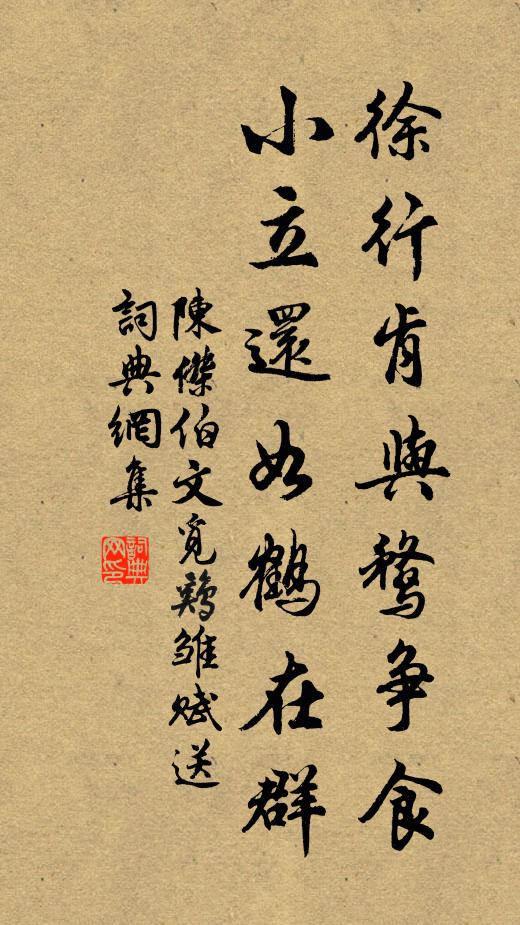 徐行肯與鶩争食
小立還如鶴在群
陳傑伯文覓鷄雏赋送
詞典網集
詞典网印